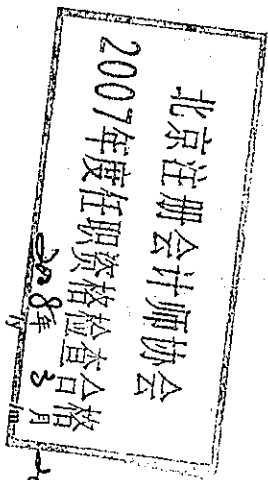 北京注册会计师协会
2007年度任职资格检查合格
二00八年 3月
/y /m